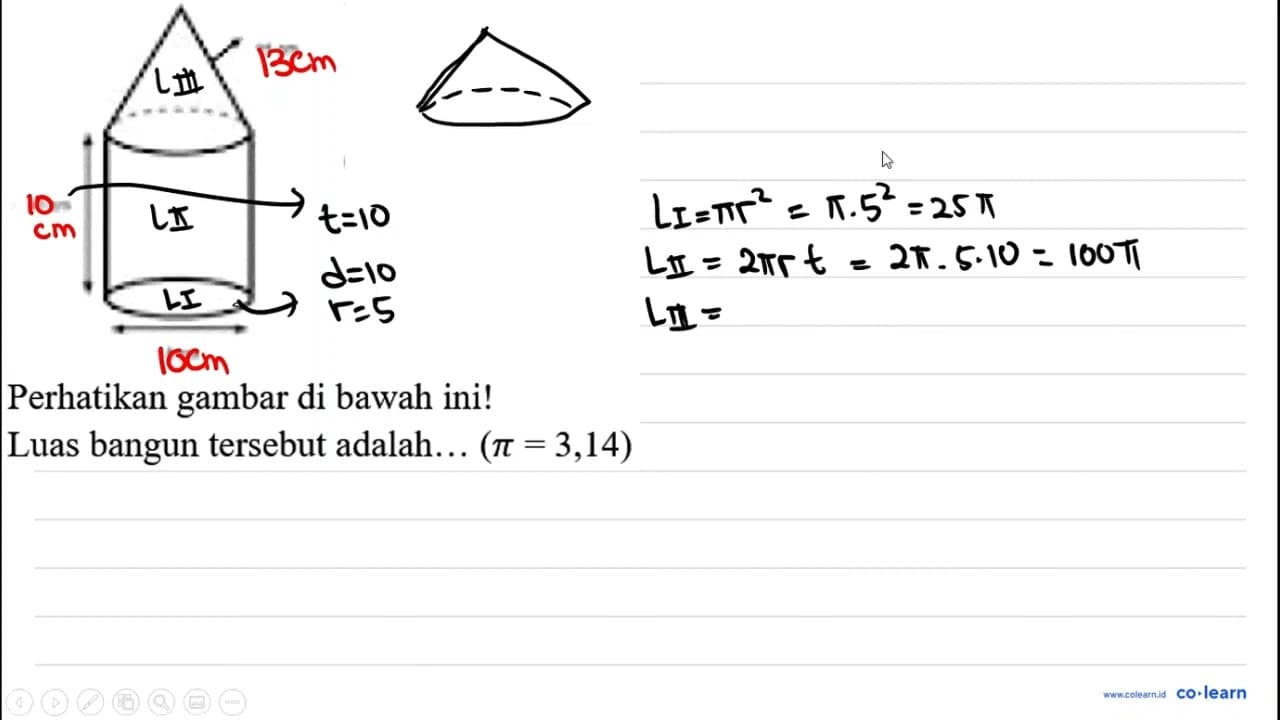 13cm
LIII
10
cm
LII
t=10
d=10
r=5
LI
10cm
LI=πr² = π.5² =25π
LII = 2πrt = 2π.5.10 = 100π
LIII =
Perhatikan gambar di bawah ini!
Luas bangun tersebut adalah… (π = 3,14)
www.colearn.id co·learn